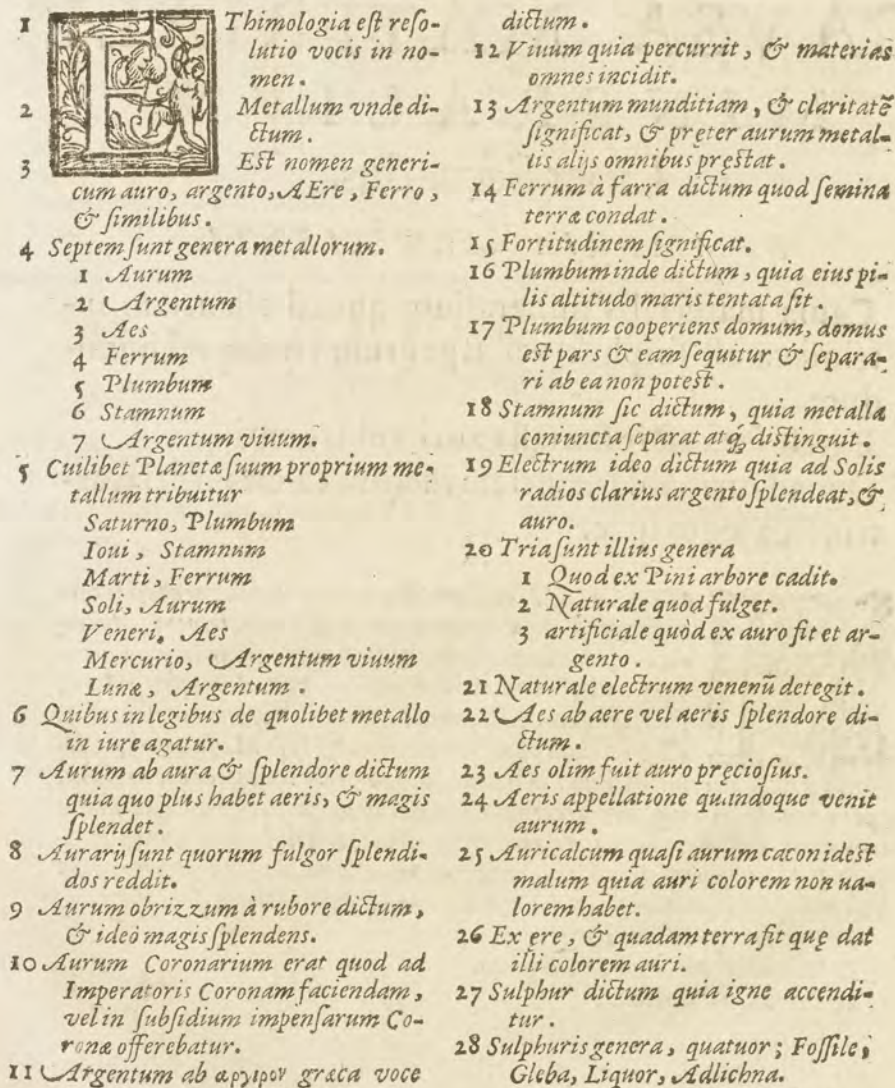 1 EThimologia est reso-
lutio vocis in no-
men.
2 Metallum vnde di-
ctum.
3 Est nomen generi-
cum auro, argento, AEre, Ferro,
& similibus.
4 Septem sunt genera metallorum.
1 Aurum
2 Argentum
3 Aes
4 Ferrum
5 Plumbum
6 Stamnum
7 Argentum viuum.
5 Cuilibet Planetæ suum proprium me-
tallum tribuitur
Saturno, Plumbum
Ioui, Stamnum
Marti, Ferrum
Soli, Aurum
Veneri, Aes
Mercurio, Argentum viuum
Lunæ, Argentum.
6 Quibus in legibus de quolibet metallo
in iure agatur.
7 Aurum ab aura & splendore dictum
quia quo plus habet aeris, & magis
splendet.
8 Aurarij sunt quorum fulgor splendi-
dos reddit.
9 Aurum obrizzum à rubore dictum,
& ideò magis splendens.
10 Aurum Coronarium erat quod ad
Imperatoris Coronam faciendam,
vel in subsidium impensarum Co-
ronæ offerebatur.
11 Argentum ab αργιρον græca voce
dictum.
12 Viuum quia percurrit, & materias
omnes incidit.
13 Argentum munditiam, & claritatẽ
significat, & pręter aurum metal-
lis alijs omnibus pręstat.
14 Ferrum à farra dictum quod semina
terræ condat.
15 Fortitudinem significat.
16 Plumbum inde dictum, quia eius pi-
lis altitudo maris tentata sit.
17 Plumbum cooperiens domum, domus
est pars & eam sequitur & separa-
ri ab ea non potest.
18 Stamnum sic dictum, quia metalla
coniuncta separat atq́; distinguit.
19 Electrum ideo dictum quia ad Solis
radios clarius argento splendeat, &
auro.
20 Tria sunt illius genera
1 Quod ex Pini arbore cadit.
2 Naturale quod fulget.
3 artificiale quòd ex auro fit et ar-
gento.
21 Naturale electrum venenũ detegit.
22 Aes ab aere vel aeris splendore di-
ctum.
23 Aes olim fuit auro pręciosius.
24 Aeris appellatione quandoque venit
aurum.
25 Auricalcum quasi aurum cacon idest
malum quia auri colorem non ua-
lorem habet.
26 Ex ęre, & quadam terra fit quę dat
illi colorem auri.
27 Sulphur dictum quia igne accendi-
tur.
28 Sulphuris genera, quatuor; Fossile,
Gleba, Liquor, Adlichna.